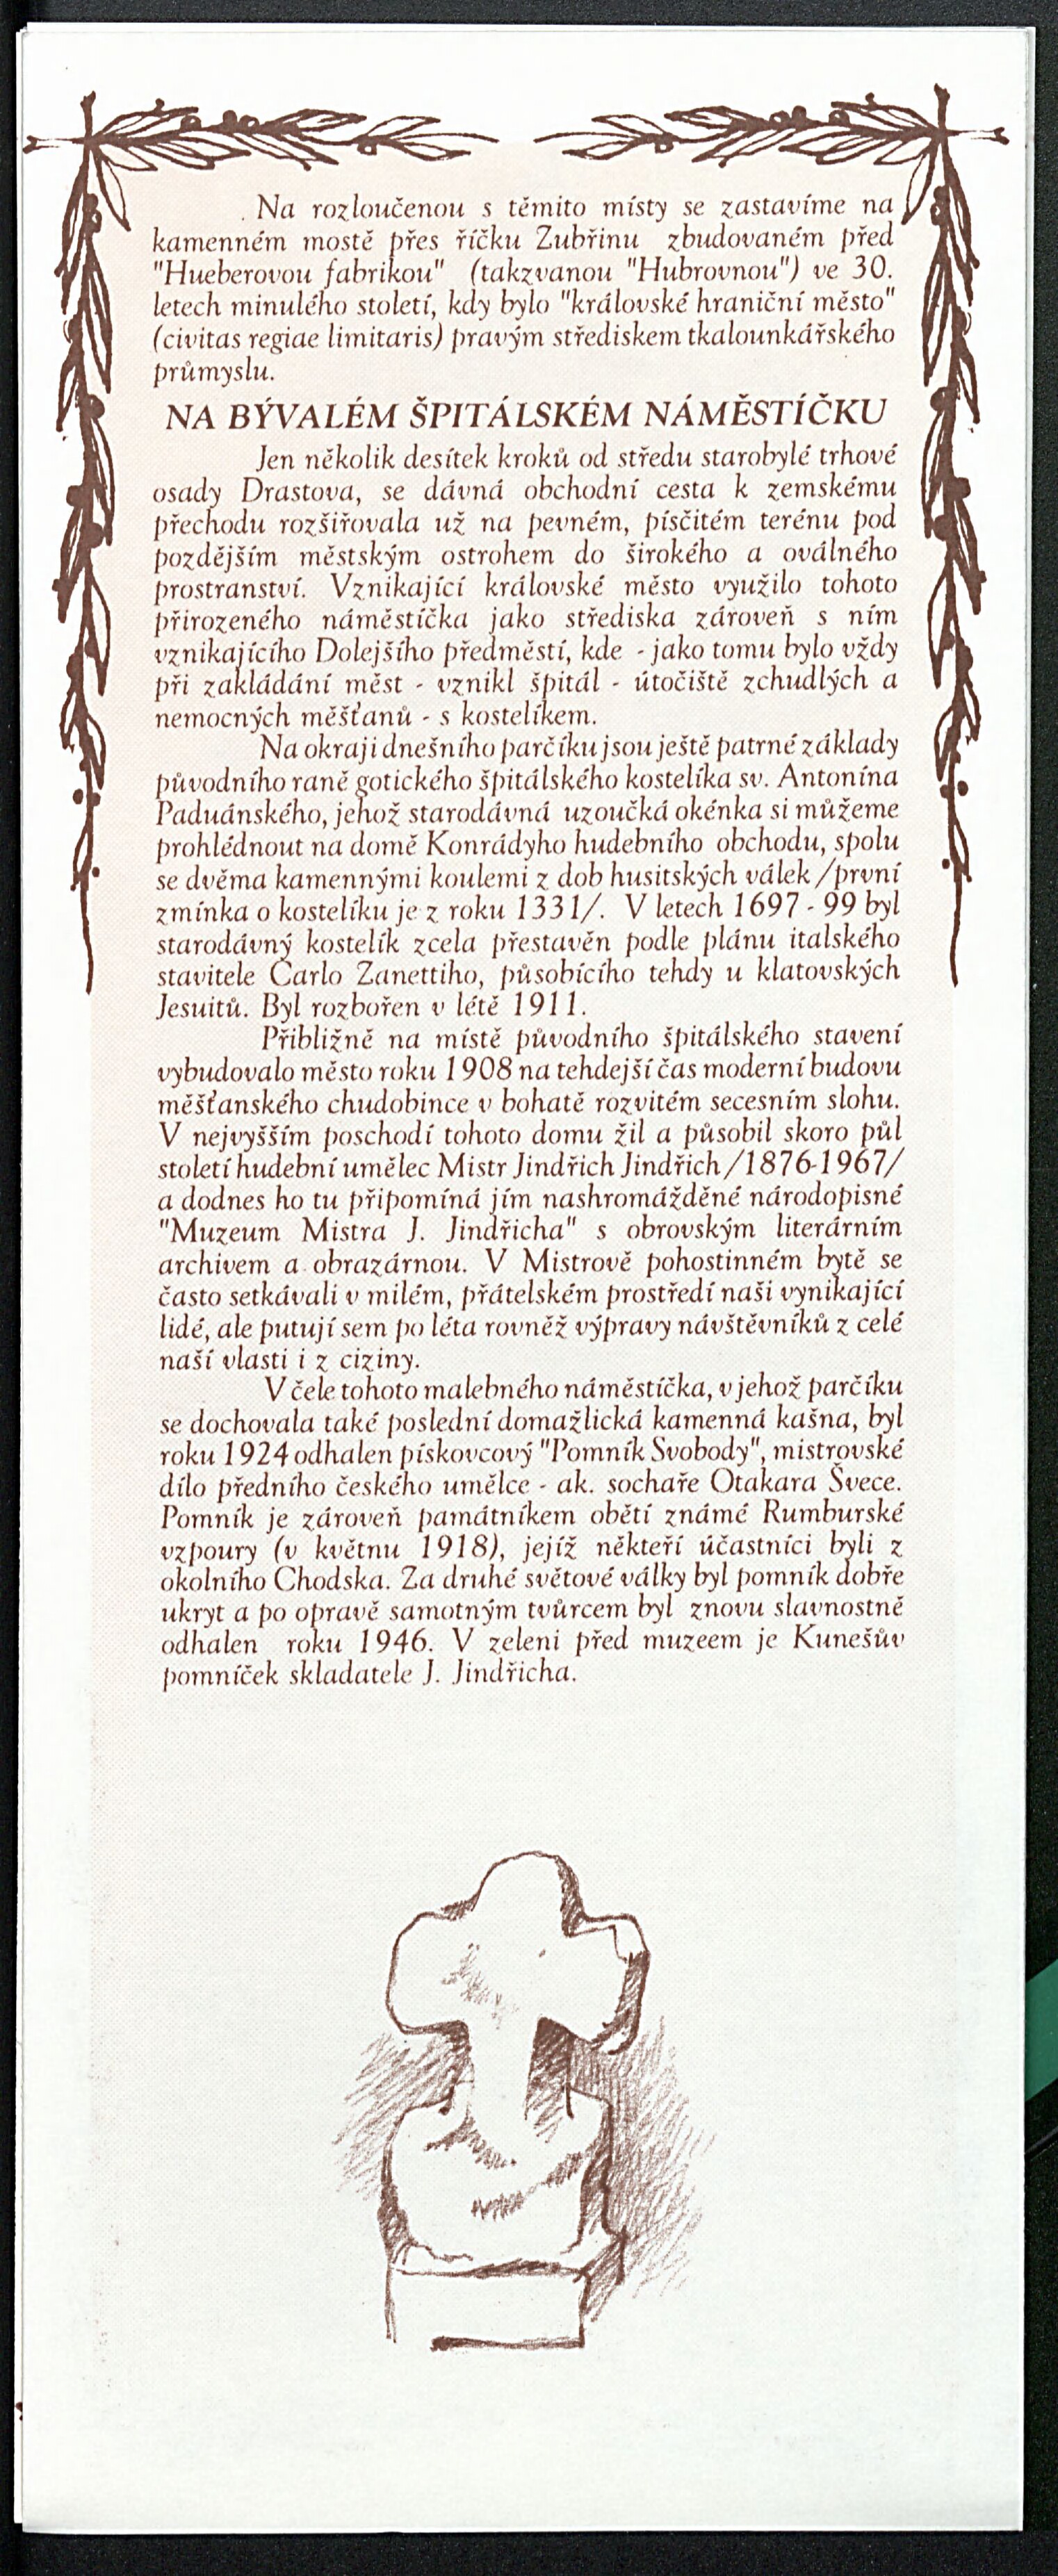 Na rozloučenou s těmito místy se zastavíme na
kamenném mostě přes říčku Zubřinu zbudovaném před
"Hueberovou fabrikou" (takzvanou "Hubrovnou") ve 30.
letech minulého století, kdy bylo "královské hraniční město"
(civitas regiae limitaris) pravým střediskem tkalounkářského
průmyslu.
NA BÝVALÉM ŠPITÁLSKÉM NÁMĚSTÍČKU
Jen několik desítek kroků od středu starobylé trhové
osady Drastova, se dávná obchodní cesta k zemskému
přechodu rozšiřovala už na pevném, písčitém terénu pod
pozdějším městským ostrohem do širokého a oválného
prostranství. Vznikající královské město využilo tohoto
přirozeného náměstíčka jako střediska zároveň s ním
vznikajícího Dolejšího předměstí, kde - jako tomu bylo vždy
při zakládání měst - vznikl špitál - útočiště zchudlých a
nemocných měšťanů - s kostelíkem.
Na okraji dnešního parčíku jsou ještě patrné základy
původního raně gotického špitálského kostelíka sv. Antonína
Paduánského, jehož starodávná uzoučká okénka si můžeme
prohlédnout na domě Konrádyho hudebního obchodu, spolu
se dvěma kamennými koulemi z dob husitských válek /první
zmínka o kostelíku je z roku 1331/. V letech 1697 - 99 byl
starodávný kostelík zcela přestavěn podle plánu italského
stavitele Carlo Zanettiho, působícího tehdy u klatovských
Jesuitů. Byl rozbořen v létě 1911.
Přibližně na místě původního špitálského stavení
vybudovalo město roku 1908 na tehdejší čas moderní budovu
měšťanského chudobince v bohatě rozvitém secesním slohu.
V nejvyšším poschodí tohoto domu žil a působil skoro půl
století hudební umělec Mistr Jindřich Jindřich /1876-1967/
a dodnes ho tu připomíná jím nashromážděné národopisné
"Muzeum Mistra J. Jindřicha" s obrovským literárním
archivem a obrazárnou. V Mistrově pohostinném bytě se
často setkávali v milém, přátelském prostředí naši vynikající
lidé, ale putují sem po léta rovněž výpravy návštěvníků z celé
naší vlasti i z ciziny.
V čele tohoto malebného náměstíčka, v jehož parčíku
se dochovala také poslední domažlická kamenná kašna, byl
roku 1924 odhalen pískovcový "Pomník Svobody", mistrovské
dílo předního českého umělce - ak. sochaře Otakara Švece.
Pomník je zároveň památníkem obětí známé Rumburské
vzpoury (v květnu 1918), jejíž někteří účastníci byli z
okolního Chodska. Za druhé světové války byl pomník dobře
ukryt a po opravě samotným tvůrcem byl znovu slavnostně
odhalen roku 1946. V zeleni před muzeem je Kunešův
pomníček skladatele J. Jindřicha.